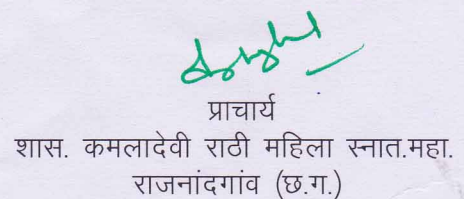 प्राचार्य
शास. कमलादेवी राठी महिला स्नात.महा.
राजनांदगांव (छ.ग.)